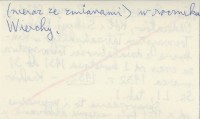 (nieraz ze zmianami) w roczniku
Wierchy.